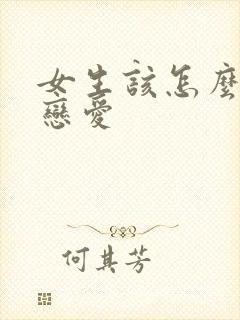 女生該怎麼
戀愛
何其芳